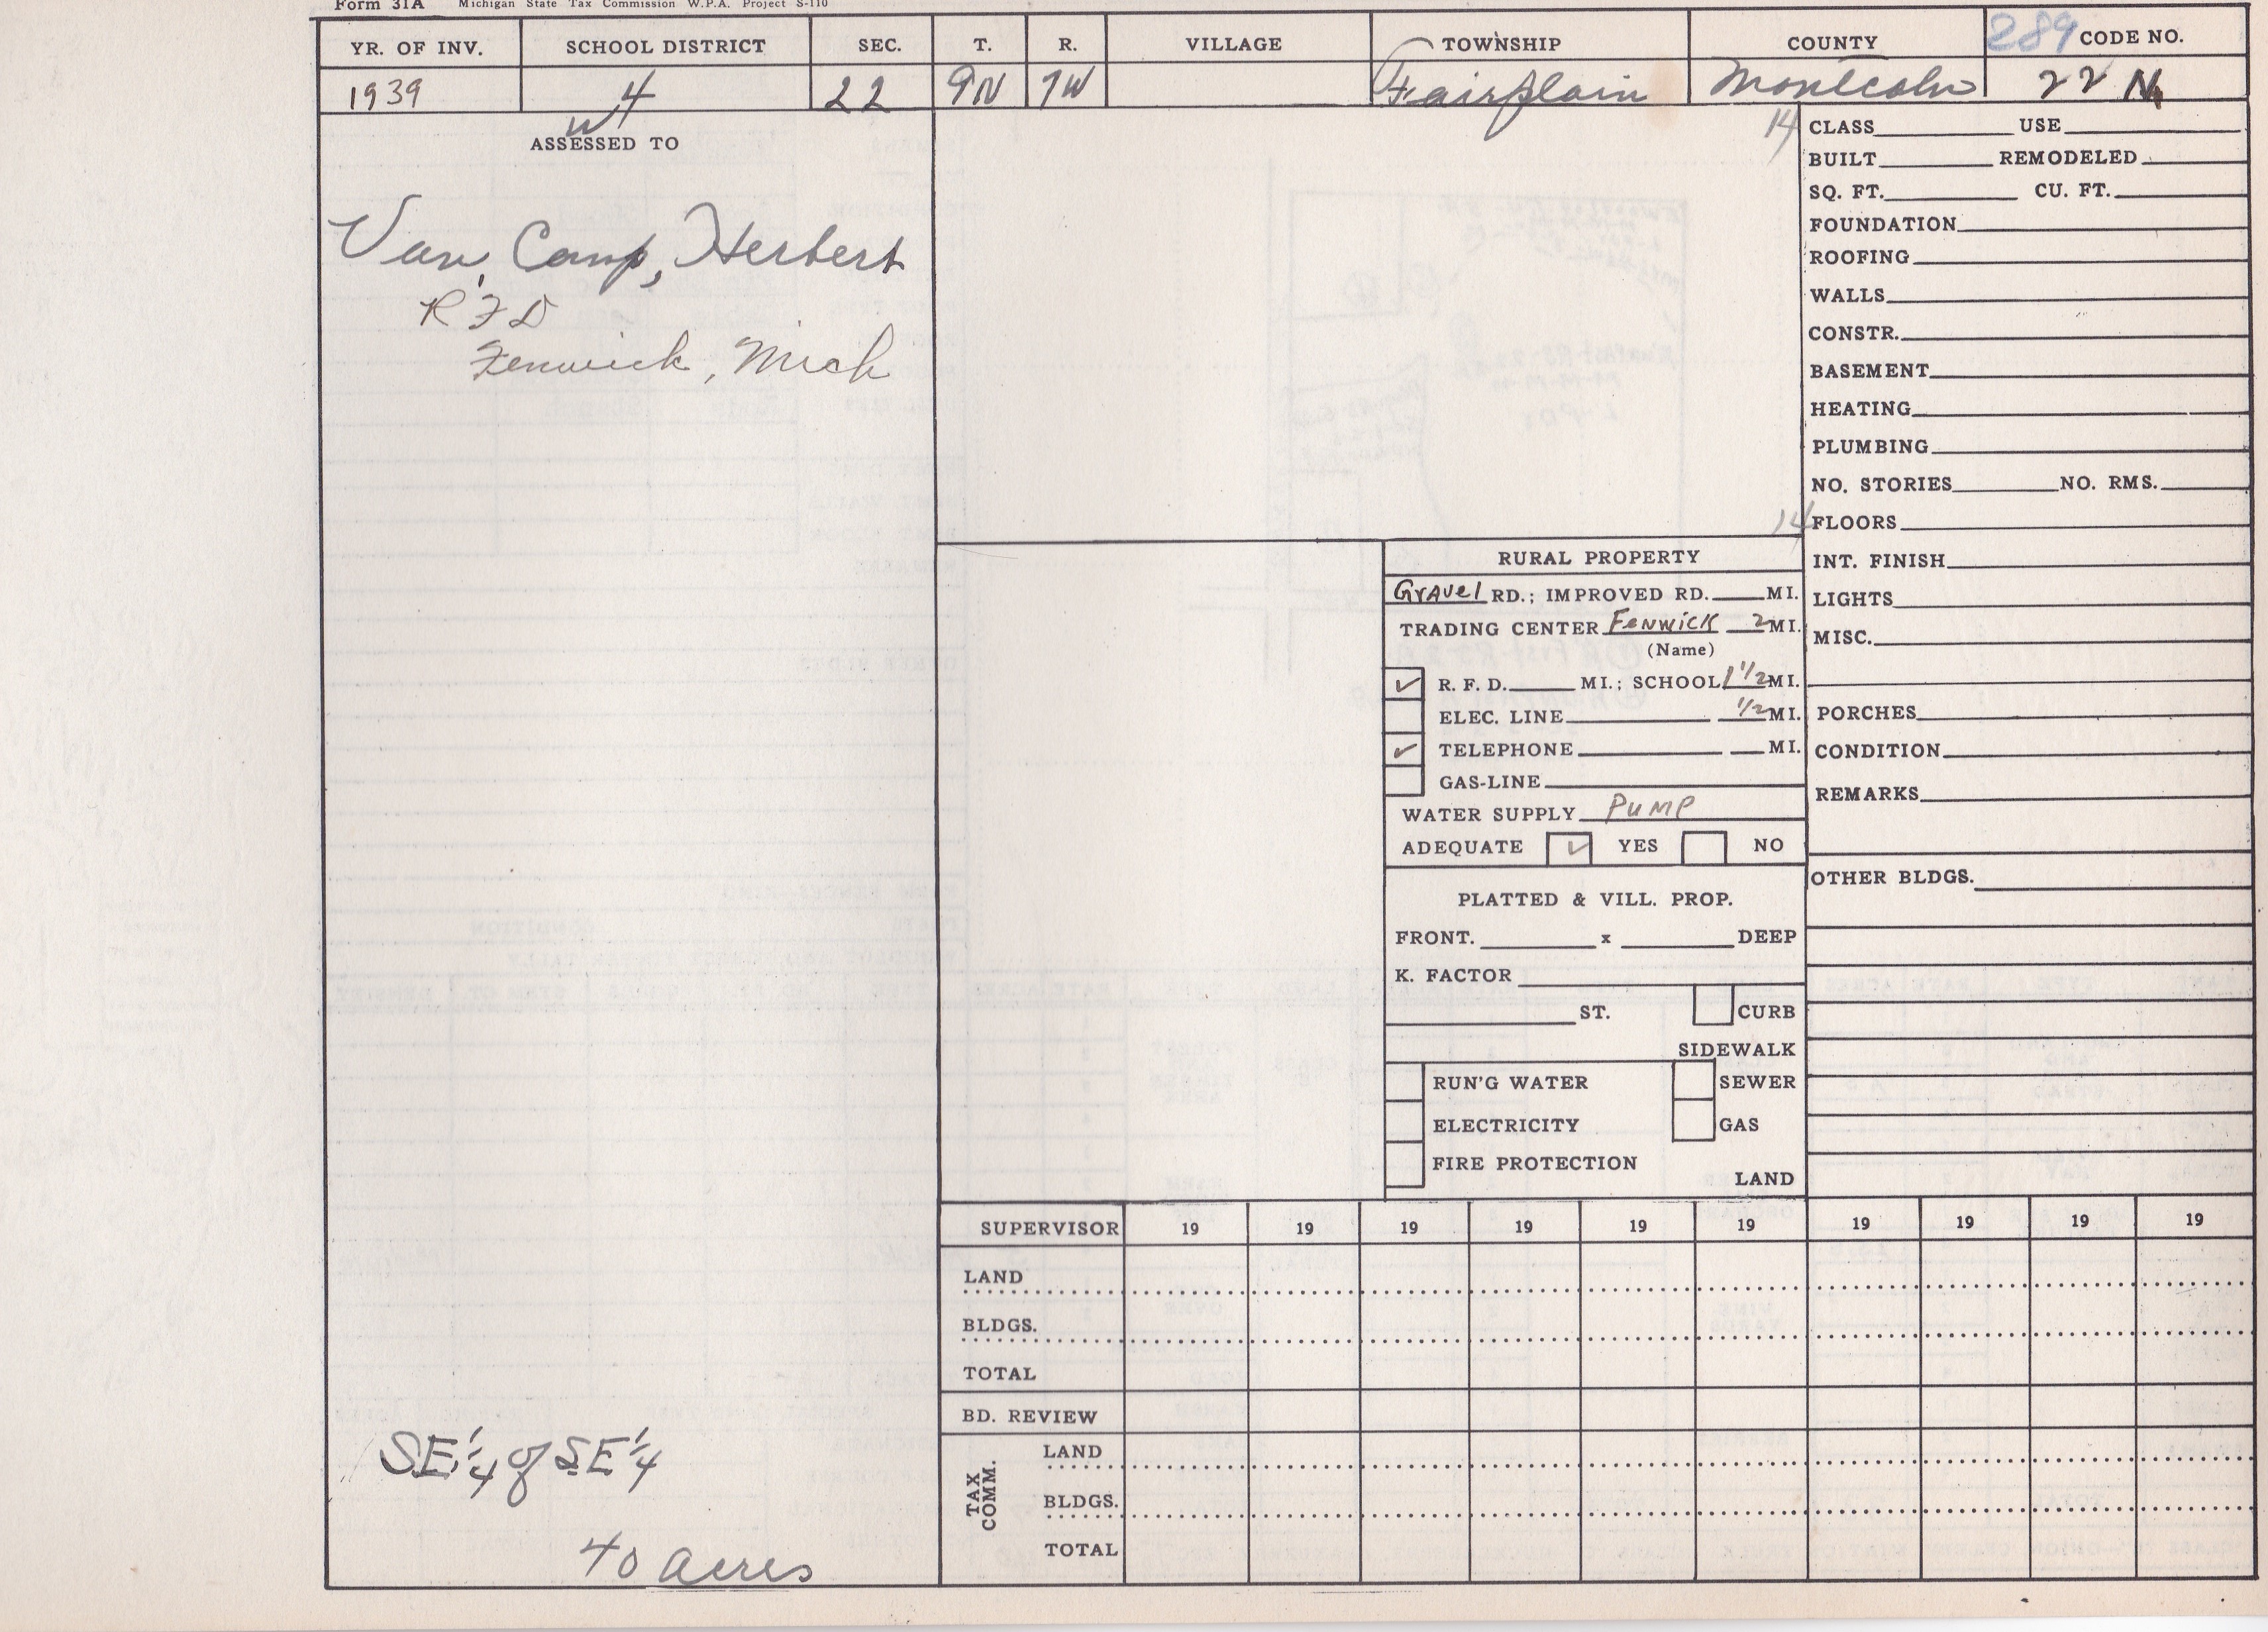 Form 31A Michigan State Tax Commission W.P.A. Project S-110
YR. OF INV. SCHOOL DISTRICT SEC. T. R. VILLAGE TOWNSHIP COUNTY 289 CODE NO.
1939 4 22 9N 7W Fairplain Montcalm 22 N
ASSESSED TO
Van Camp, Herbert
RFD
Fenwick, Mich
SE 1/4 of SE 1/4
40 acres
14
14
RURAL PROPERTY
Gravel RD.; IMPROVED RD. MI.
TRADING CENTER Fenwick 2 MI.
(Name)
✓ R. F. D. MI.; SCHOOL 1 1/2 MI.
ELEC. LINE 1/2 MI.
✓ TELEPHONE MI.
GAS-LINE
WATER SUPPLY PUMP
ADEQUATE ✓ YES NO
PLATTED & VILL. PROP.
FRONT. x DEEP
K. FACTOR
ST. CURB
SIDEWALK
RUN'G WATER SEWER
ELECTRICITY GAS
FIRE PROTECTION
LAND
CLASS USE
BUILT REMODELED
SQ. FT. CU. FT.
FOUNDATION
ROOFING
WALLS
CONSTR.
BASEMENT
HEATING
PLUMBING
NO. STORIES NO. RMS.
FLOORS
INT. FINISH
LIGHTS
MISC.
PORCHES
CONDITION
REMARKS
OTHER BLDGS.
SUPERVISOR 19 19 19 19 19 19 19 19 19 19
LAND
BLDGS.
TOTAL
BD. REVIEW
TAX COMM.
LAND
BLDGS.
TOTAL